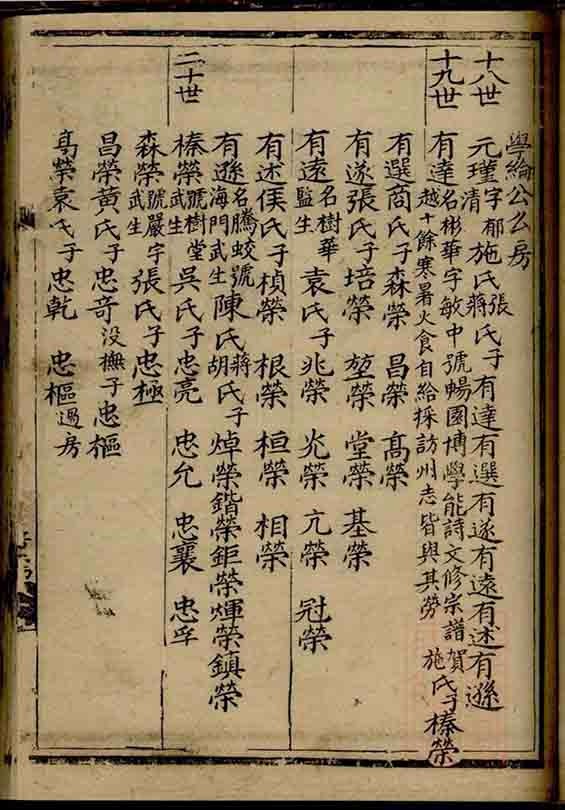 學綸公么房
十八世
元瑾字郁清施氏張蔣氏子有達有選有遂有遠有述有遜
十九世
有達名彬華字敏中號暢園博學能詩文修宗譜越十餘寒暑火食自給採訪州志皆與其勞賀施氏子榛榮
有選商氏子森榮 昌榮 高榮
有遂張氏子培榮 堃榮 堂榮 基榮
有遠名樹華監生袁氏子兆榮 光榮 亢榮 冠榮
有述侯氏子楨榮 根榮 桓榮 相榮
有遜名騰蛟號海門武生陳氏蔣胡氏子焯榮鍇榮鉅榮煇榮鎮榮
二十世
榛榮號樹堂武生吳氏子忠亮 忠允 忠襄 忠孚
森榮號嚴字武生張氏子忠極
昌榮黃氏子忠奇没撫子忠樞
高榮袁氏子忠乾 忠樞過房